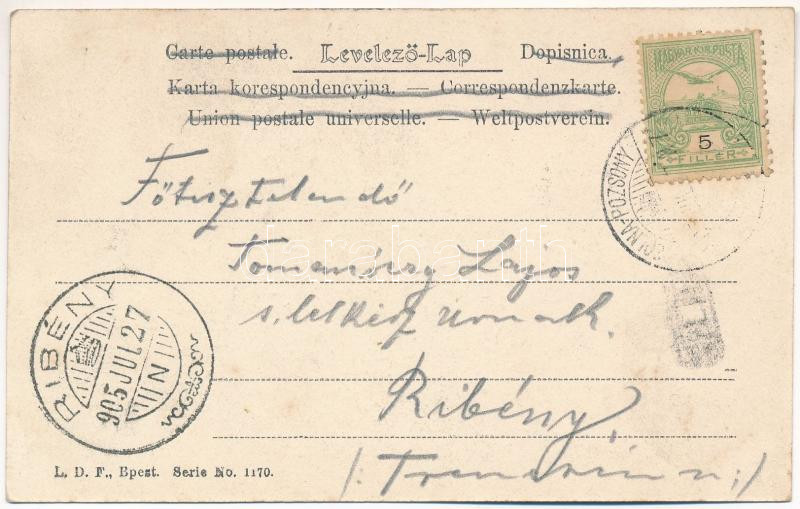 Carte postale. Levelező-Lap Dopisnica.
Karta korespondencyjna. — Correspondenzkarte.
Union postale universelle. — Weltpostverein.
MAGYAR KIR. POSTA
5
FILLÉR
ZSOLNA-POZSONY
Főtisztelendő
Lajos
s. lelkész urnak.
Ribény,
/: Trencsén m :/
RIBÉNY
905 JUL 27
N
L. D. F., Bpest. Serie No. 1170.
darabanth